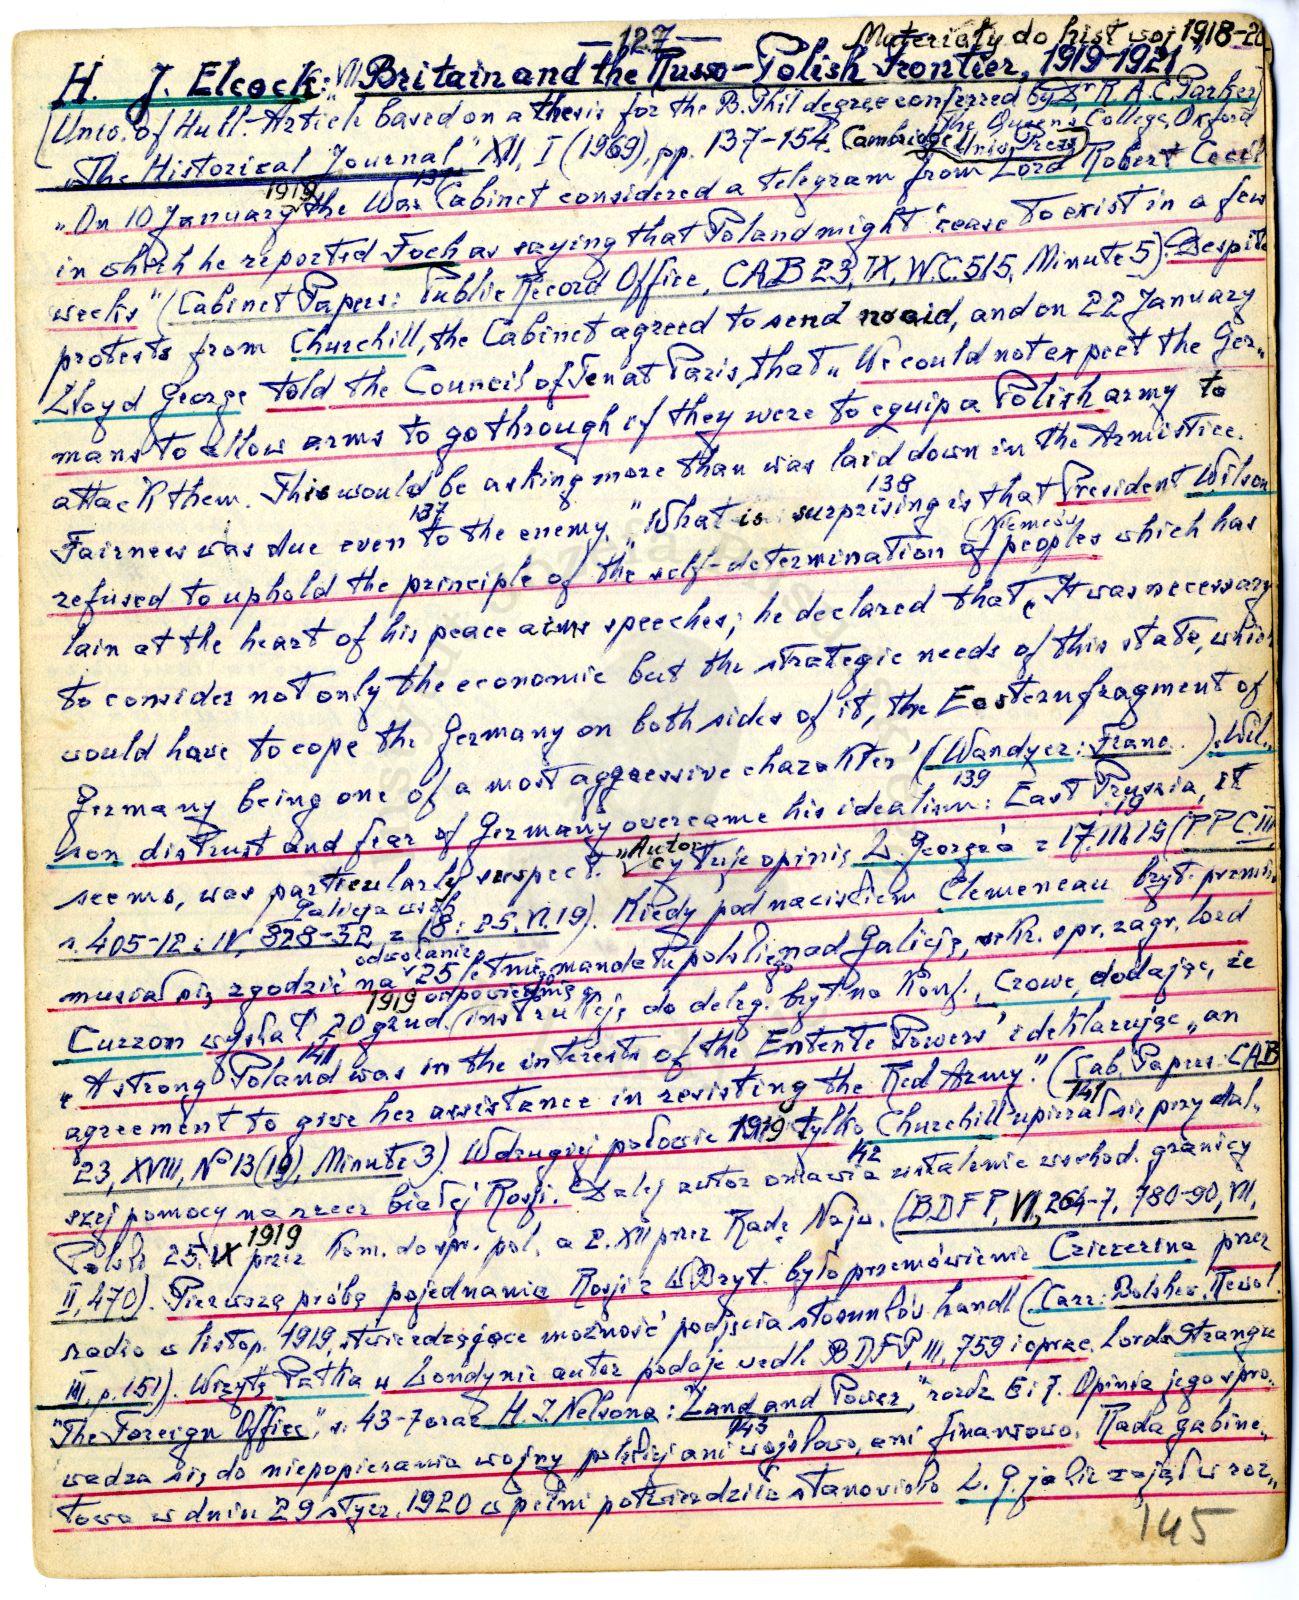 — 127 —
Materiały do hist. woj. 1918–20
H. J. Elcock: "Britain and the Russo-Polish Frontier, 1919-1921"
(Univ. of Hull. Article based on a thesis for the B. Phil degree conferred by Dr R. A. C. Parker)
The Queens College, Oxford
"The Historical Journal" XII, I (1969), pp. 137-154. Cambridge Univ. Press
1919 137
„On 10 January the War Cabinet considered a telegram from Lord Robert Cecil
in which he reported Foch as saying that Poland might 'cease to exist in a few
weeks" (Cabinet Papers: Public Record Office, CAB 23, IX, W.C. 515, Minute 5). Despite
protests from Churchill, the Cabinet agreed to send no aid, and on 22 January
Lloyd George told the Council of Ten at Paris, that „We could not expect the Ger-
mans to allow arms to go through if they were to equip a Polish army to
attack them. This would be asking more than was laid down in the Armistice.
137 138
Fairness was due even to the enemy." What is surprising is that President Wilson
(Niemców
refused to uphold the principle of the self-determination of peoples which has
lain at the heart of his peace aims speeches; he declared that „It was necessary
to consider not only the economic but the strategic needs of this state, which
would have to cope the Germany on both sides of it, the Eastern fragment of
Germany being one of a most aggressive charakter' (Wandycz: Franc. ). Wil-
139
son distrust and fear of Germany overcame his idealism: East Prussia, it
19
seems, was particularly suspect." Autor cytuje opinię L. George'a z 17.III.19 (PPC III,
Galicja wsch.
s. 405-12: IV, 828-32, z 18: 25.VI.19). Kiedy pod naciskiem Clemenceau bryt. premier
odwołanie
musiał się zgodzić na 25 letniego mandatu polskiego nad Galicją, sekr. spr. zagr. lord
1919 odpowiednią
Curzon wysłał 20 grud. instrukcję do deleg. bryt. na Konf., Crowe, dodając, że
141
„A strong Poland was in the interests of the Entente Powers' i deklarując „an
agreement to give her assistance in resisting the Red Army." (Cab. Papers. CAB
141
23, XVIII, No 13 (19), Minute 3). W drugiej połowie 1919 tylko Churchill upierał się przy dal-
142
szej pomocy na rzecz białej Rosji. Dalej autor omawia ustalenie wschod. granicy
1919
Polski 25.IX przez Kom. do spr. pol. a 2.XII przez Radę Najw. (BDFP, VI, 264-7, 780-90, VII,
II, 470). Pierwszą próbą pojednania Rosji z W Bryt. było przemówienie Cziczerina przez
radio w listop. 1919, stwierdzające możność podjęcia stosunków handl (Carr: Bolshev. Revol.
III, p. 151). Wizytę Patka w Londynie autor podaje wedł. BDFP, III, 759 i oprac. lorda Stranga
"The Foreign Office", s. 43-7 oraz H. I. Nelsona: "Land and Power", rozdz. 6 i 7. Opinia jego spro-
143
wadza się do niepopierania wojny polskiej ani wojskowo, ani finansowo. Rada gabine-
towa w dniu 29 stycz. 1920 w pełni potwierdziła stanowisko L. G. jakie zajął w roz-
145